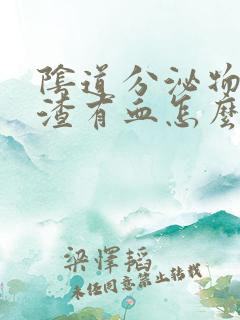 陰道分泌物
渣有血怎麼
梁懌韜
未经同意禁止转载